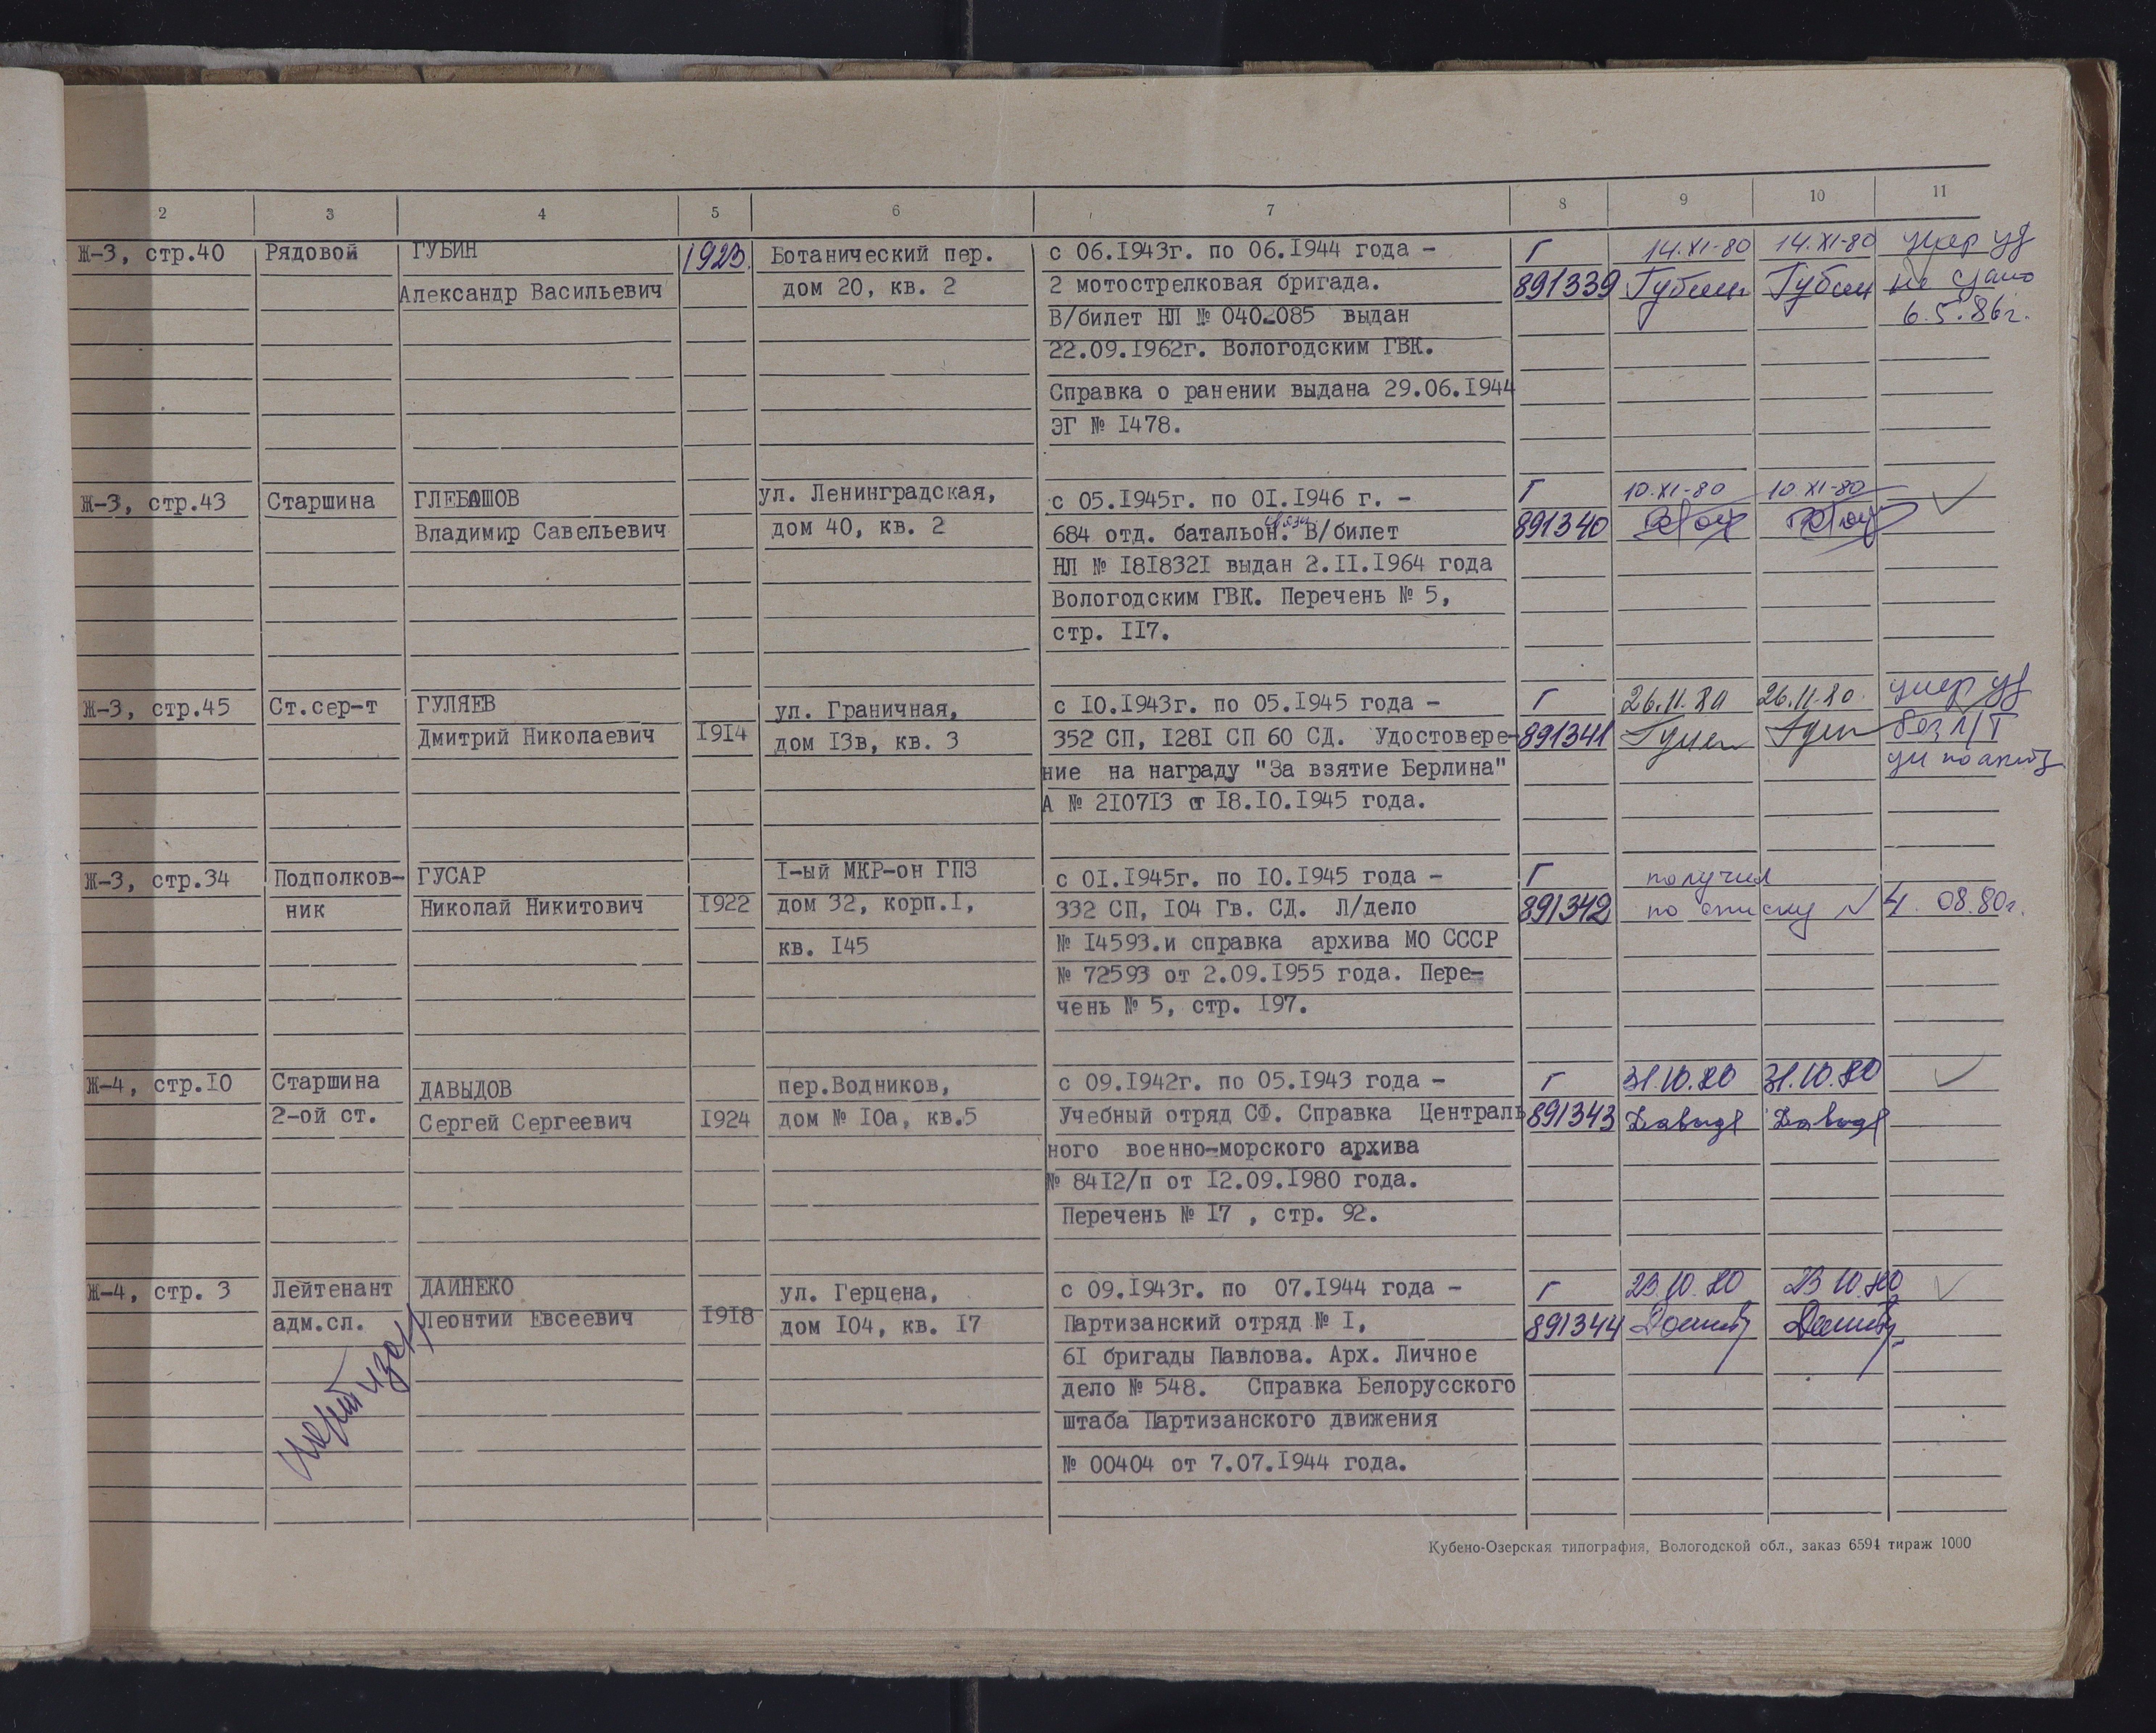 2 3 4 5 6 7 8 9 10 11
Ж-3, стр.40 Рядовой ГУБИН 1923. Ботанический пер. с 06.1943г. по 06.1944 года - Г 14.XI-80 14.XI-80 умер уд
Александр Васильевич дом 20, кв. 2 2 мотострелковая бригада. 891339 Губин Губин не сдано
В/билет НЛ № 040-085 выдан 6.5.86г.
22.09.1962г. Вологодским ГВК.
Справка о ранении выдана 29.06.1944
ЭГ № 1478.
Ж-3, стр.43 Старшина ГЛЕБАШОВ ул. Ленинградская, с 05.1945г. по 01.1946 г. - Г 10.XI-80 10.XI-80
Владимир Савельевич дом 40, кв. 2 684 отд. батальон. связи В/билет 891340
НЛ № 1818321 выдан 2.11.1964 года
Вологодским ГВК. Перечень № 5,
стр. 117.
Ж-3, стр.45 Ст.сер-т ГУЛЯЕВ ул. Граничная, с 10.1943г. по 05.1945 года - Г 26.11.80 26.11.80. умер уд
Дмитрий Николаевич 1914 дом 13в, кв. 3 352 СП, 1281 СП 60 СД. Удостовере- 891341 без
ние на награду "За взятие Берлина"
А № 210713 от 18.10.1945 года.
Ж-3, стр.34 Подполков- ГУСАР 1-ый МКР-он ГПЗ с 01.1945г. по 10.1945 года - Г получил
ник Николай Никитович 1922 дом 32, корп.1, 332 СП, 104 Гв. СД. Л/дело 891342 по списку № 4. 08.80г.
кв. 145 № 14593.и справка архива МО СССР
№ 72593 от 2.09.1955 года. Пере-
чень № 5, стр. 197.
Ж-4, стр.10 Старшина ДАВЫДОВ пер.Водников, с 09.1942г. по 05.1943 года - Г 31.10.80 31.10.80
2-ой ст. Сергей Сергеевич 1924 дом № 10а, кв.5 Учебный отряд СФ. Справка Централь 891343 Давыд Давыд
ного военно-морского архива
№ 8412/п от 12.09.1980 года.
Перечень № 17 , стр. 92.
Ж-4, стр. 3 Лейтенант ДАЙНЕКО ул. Герцена, с 09.1943г. по 07.1944 года - Г 23.10.80 23 10.80
адм.сл. Леонтий Евсеевич 1918 дом 104, кв. 17 Партизанский отряд № 1, 891344
61 бригады Павлова. Арх. Личное
дело № 548. Справка Белорусского
штаба Партизанского движения
№ 00404 от 7.07.1944 года.
Кубено-Озерская типография, Вологодской обл., заказ 6594 тираж 1000